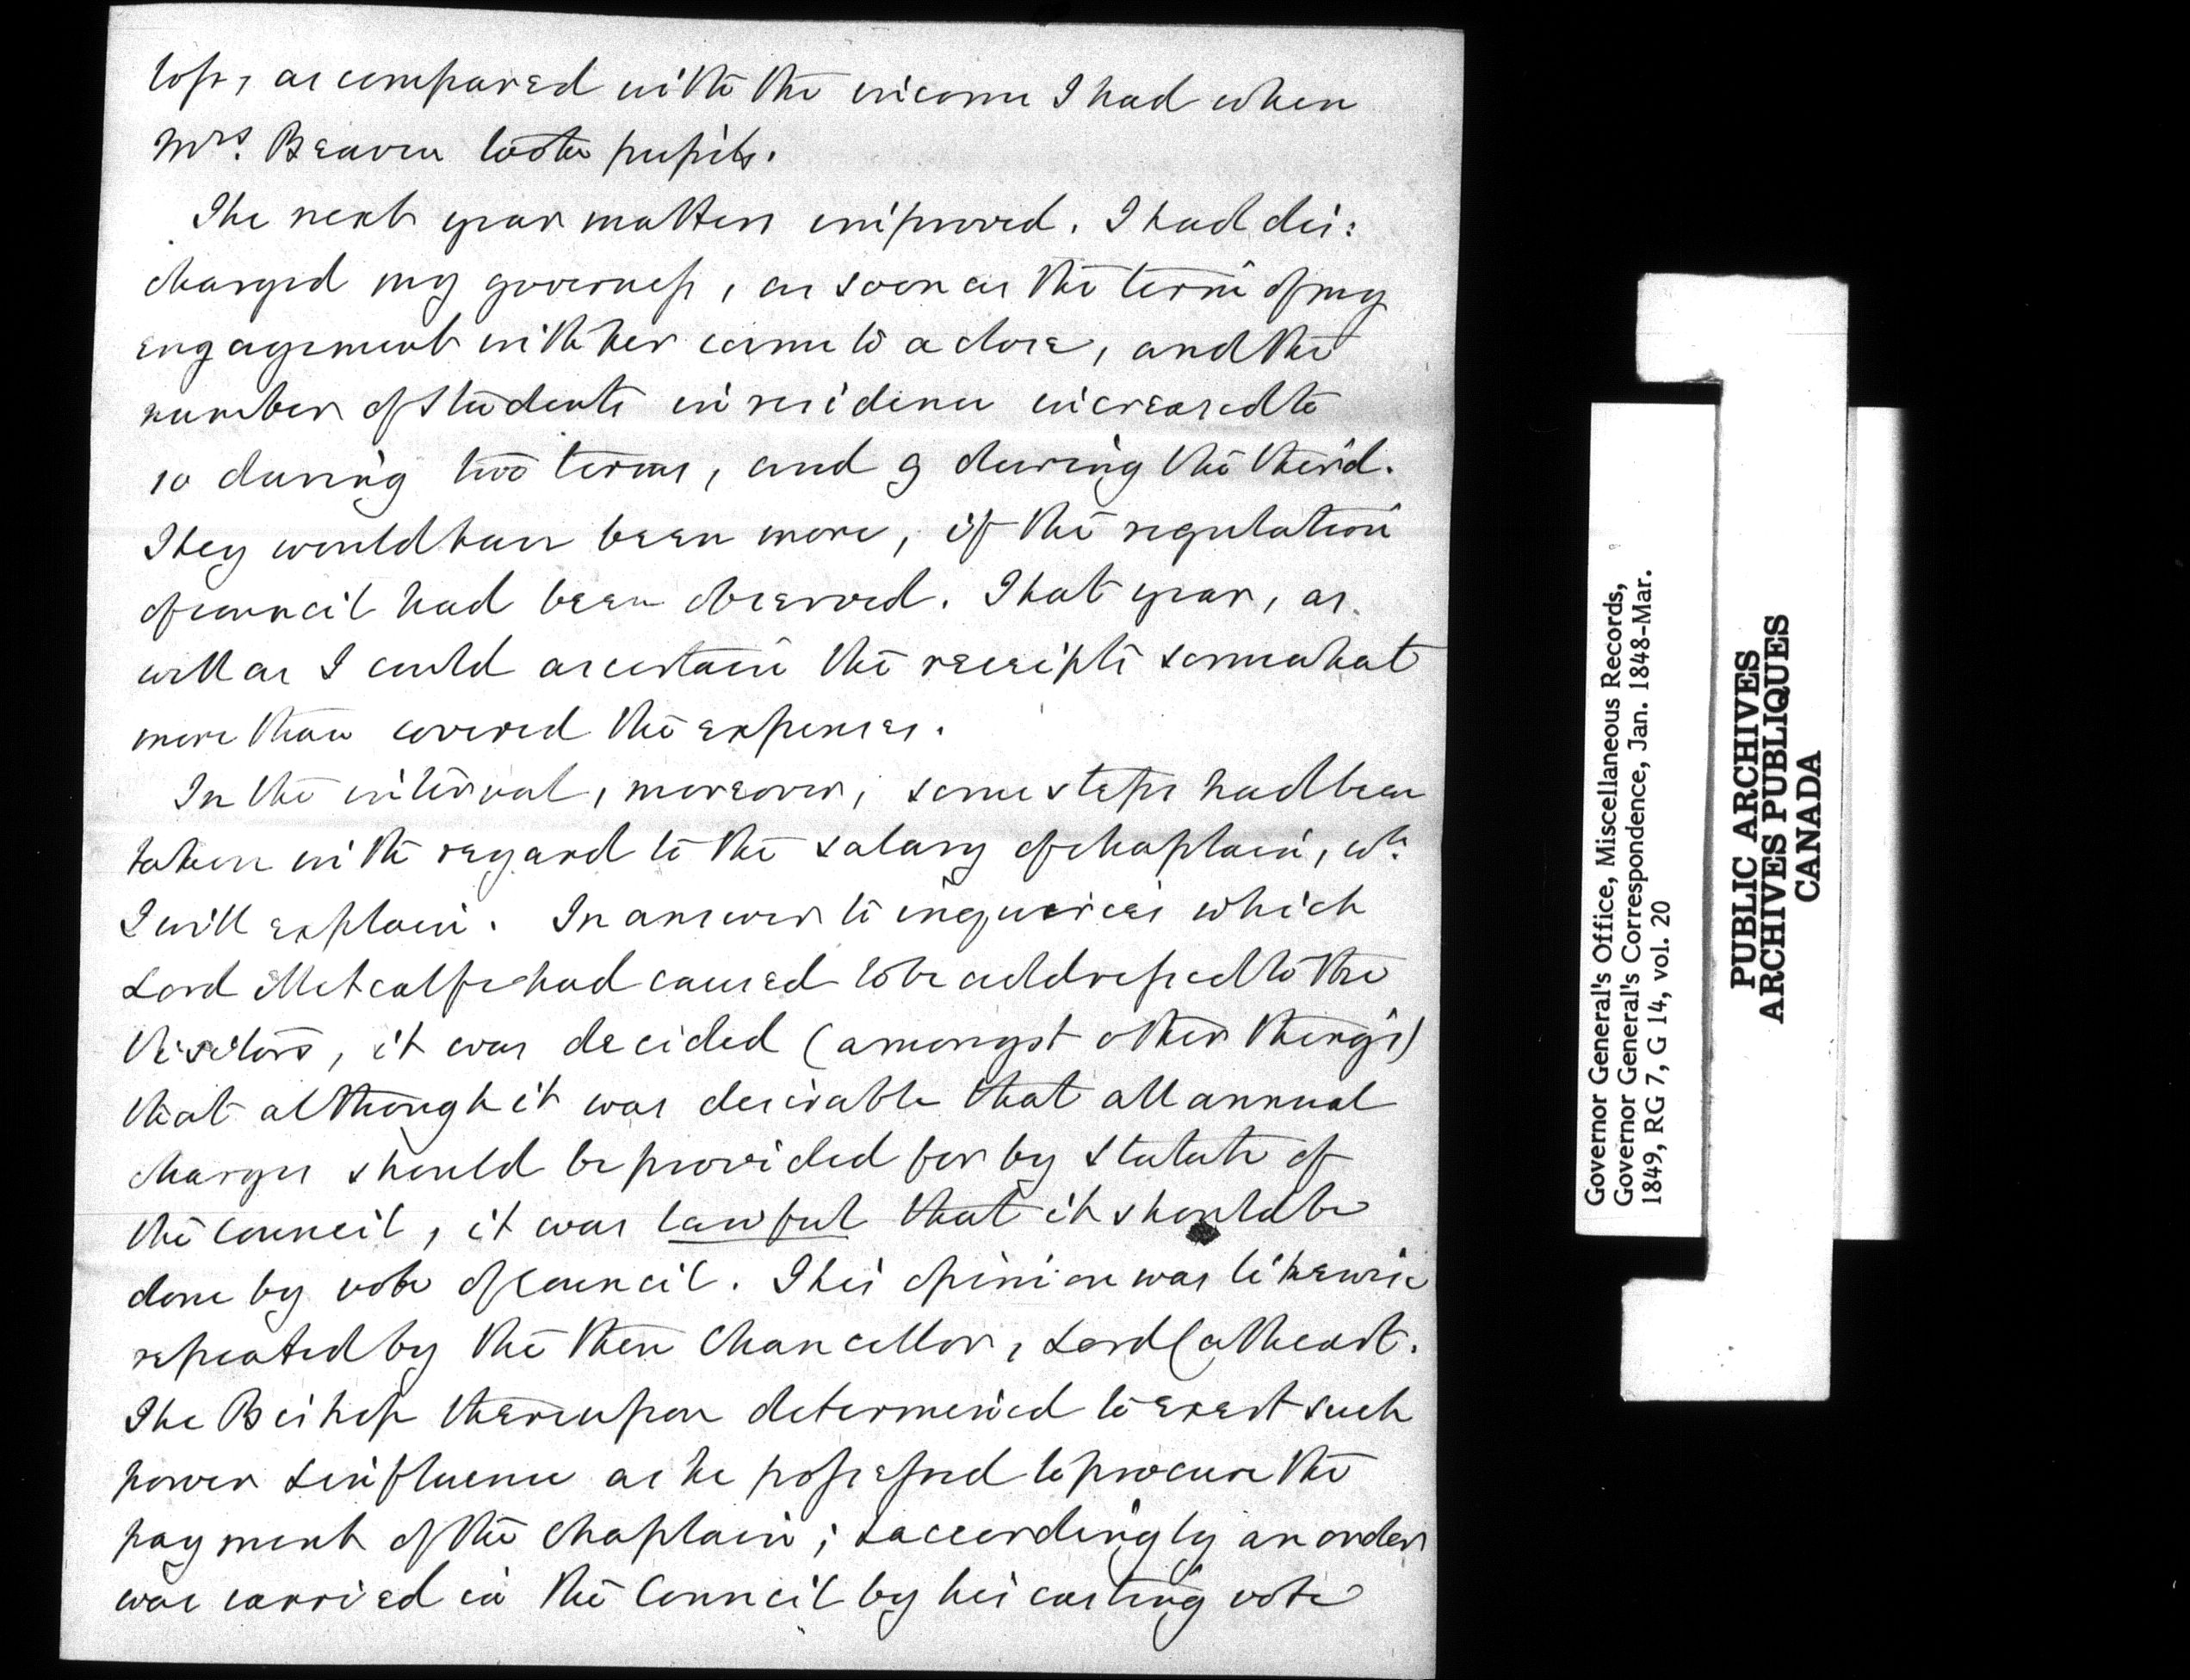 loss, as compared with the income I had when
Mrs. Beaven took pupils.
The next year matters improved. I had dis:
charged my governess, as soon as the term of my
engagement with her came to a close, and the
number of students in residence increased to
10 during two terms, and 9 during the third.
They would have been more, if the regulation
of council had been observed. That year, as
well as I could ascertain the receipts somewhat
more than covered the expenses.
In the interval, moreover, some steps had been
taken with regard to the salary of chaplain, wh.
I will explain. In answer to inquiries which
Lord Metcalfe had caused to be addressed to the
Visitors, it was decided (amongst other things)
that although it was desirable that all annual
charges should be provided for by Statute of
the Council, it was lawful that it should be
done by vote of Council. This opinion was likewise
repeated by the then Chancellor, Lord Cathcart.
The Bishop thereupon determined to exert such
power & influence as he possessed to procure the
payment of the Chaplain; & accordingly an order
was carried in the Council by his casting vote
Governor General's Office, Miscellaneous Records,
Governor General's Correspondence, Jan. 1848-Mar.
1849, RG 7, G 14, vol. 20
PUBLIC ARCHIVES
ARCHIVES PUBLIQUES
CANADA